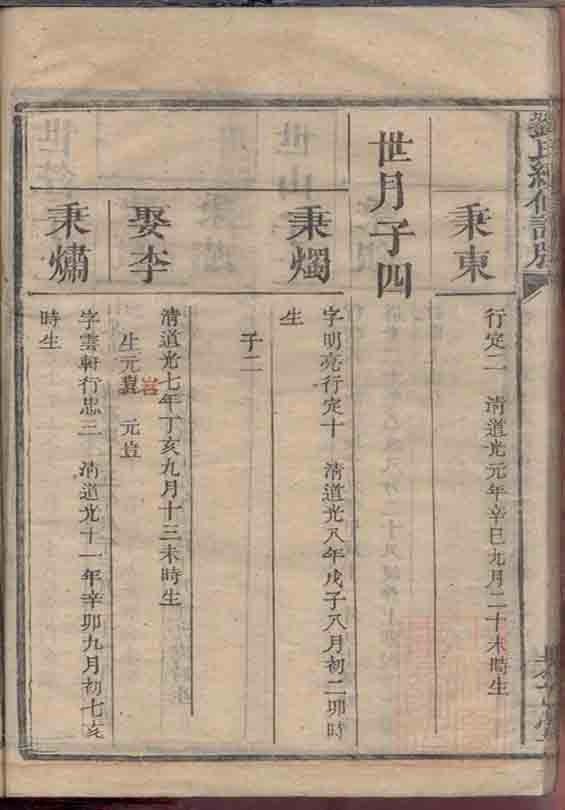 秉東
行定二 清道光元年辛巳九月二十未時生
世月子四
秉燭
字明亮行定十 清道光八年戊子八月初二卯時
生
子二
娶李
清道光七年丁亥九月十三未時生
生元 元豈
秉㷖
字雲軒行忠三 清道光十一年辛卯九月初七亥
時生